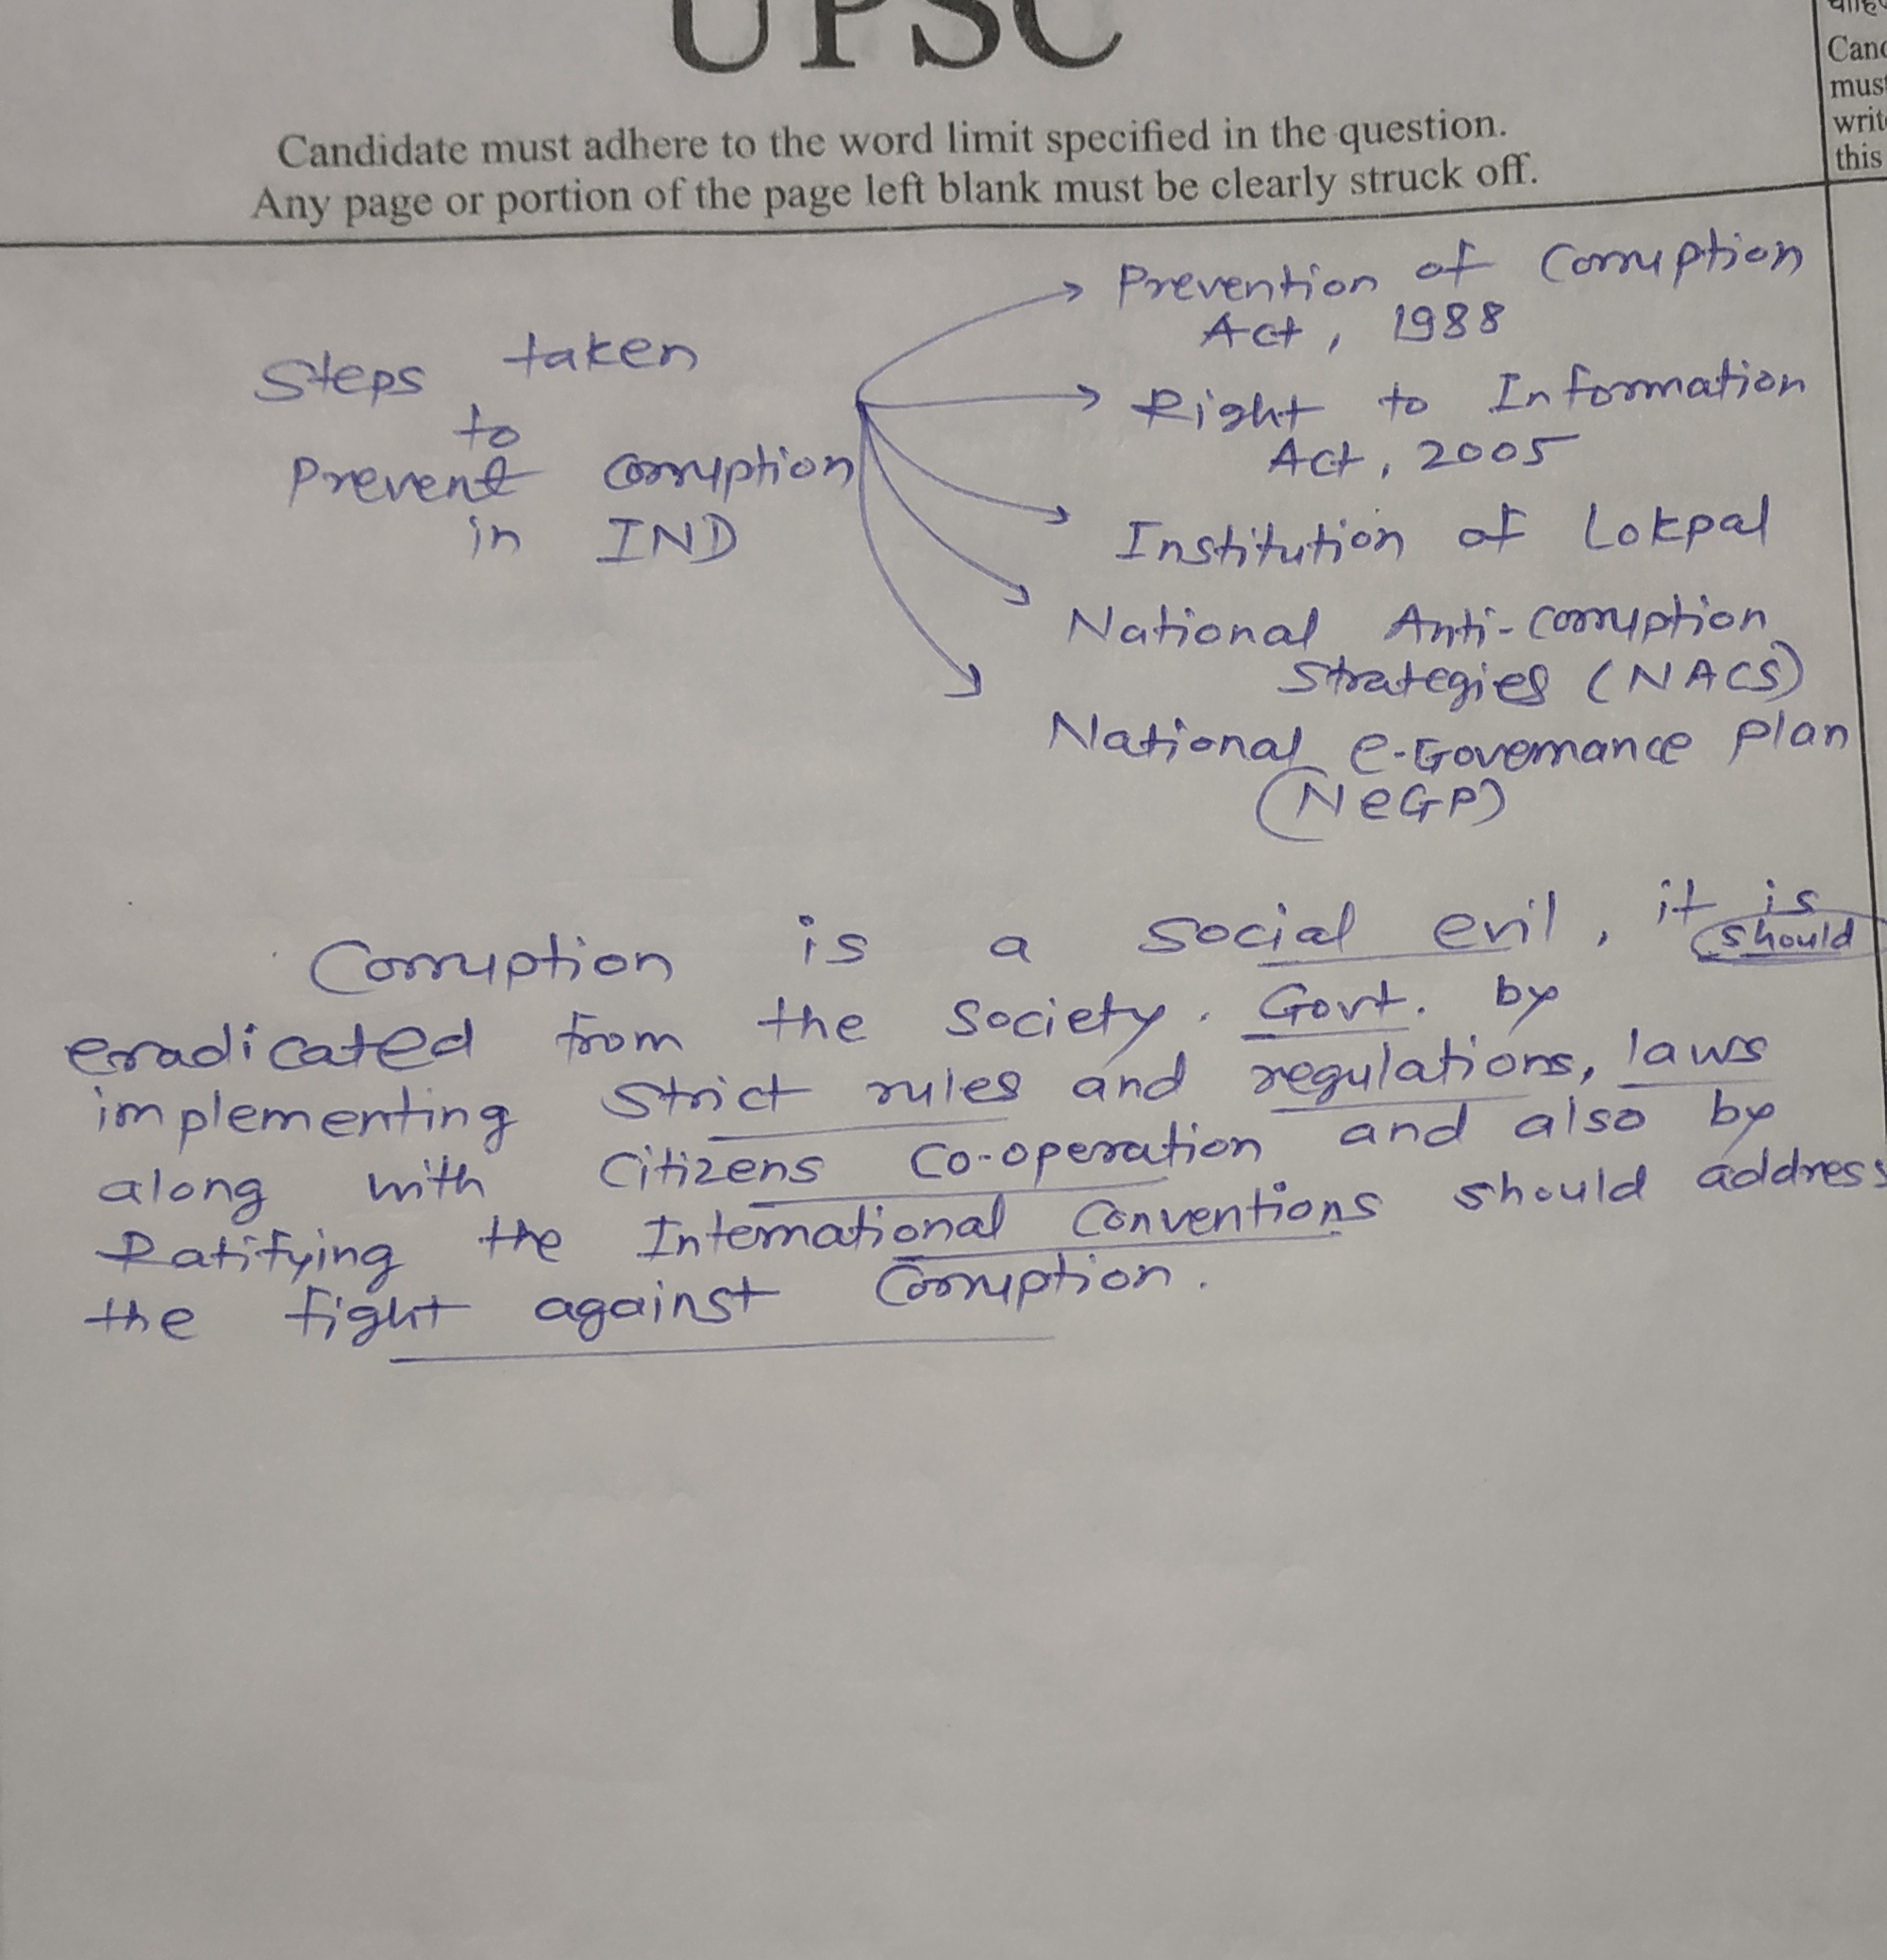 UPSC
Candidate must adhere to the word limit specified in the question.
Any page or portion of the page left blank must be clearly struck off.
must
this
Steps taken
to
Prevent corruption
in IND
Prevention of Corruption
Act, 1988
Right to Information
Act, 2005
Institution of Lokpal
National Anti-corruption
Strategies (NACS)
National e-Governance plan
(NeGP)
Corruption is a social evil, it is
should
eradicated from the society. Govt. by
implementing strict rules and regulations, laws
along with citizens co-operation and also by
Ratifying the International Conventions should address
the fight against Corruption.